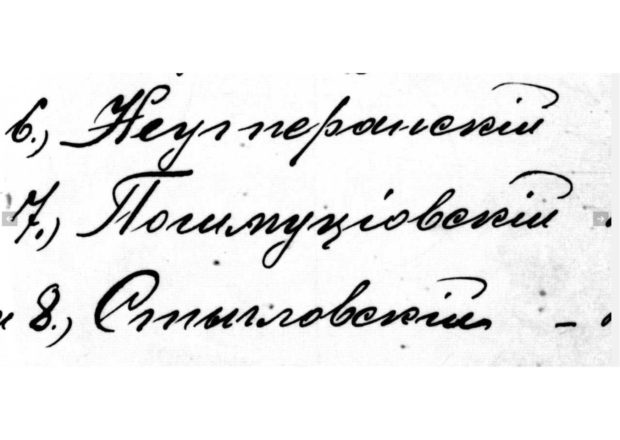 6.) Неугперанскій
7.) Погимуціовскій
8.) Стыгловскій –